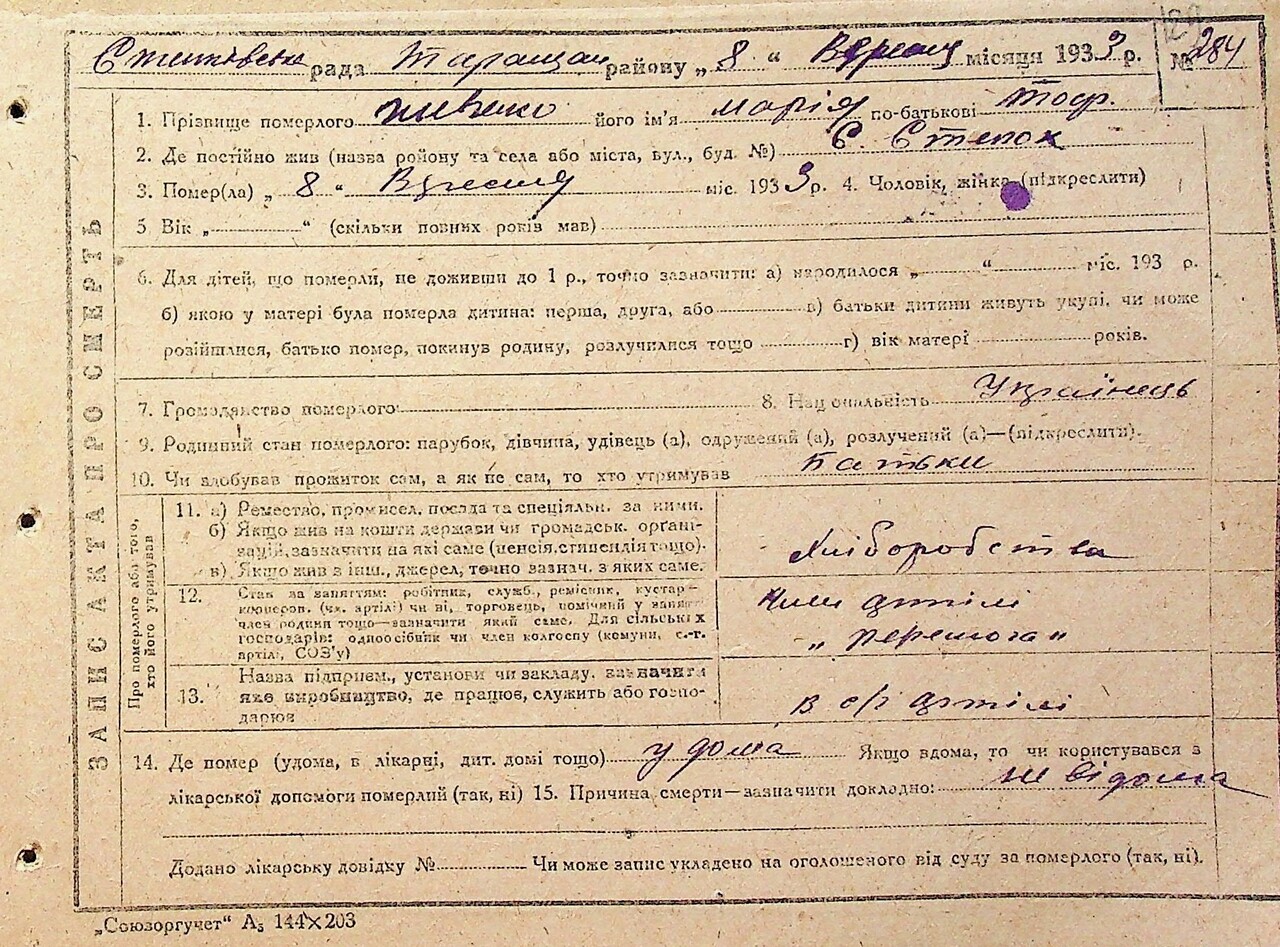 Степківська рада Таращан району „ 8 “ Вересня місяця 1933 р. № 284
1. Прізвище померлого його ім'я марія по-батькові Тоф.
2. Де постійно жив (назва району та села або міста, вул., буд. №) С. Степок
3. Помер(ла) „ 8 “ Вересня міс. 1933 р. 4. Чоловік, жінка (підкреслити)
5 Вік „ “ (скільки повних років мав)
6. Для дітей, що померли, не доживши до 1 р., точно зазначити: а) народилося „ “ міс. 193 р.
б) якою у матері була померла дитина: перша, друга, або в) батьки дитини живуть укупі, чи може
розійшлися, батько помер, покинув родину, розлучилися тощо г) вік матері років.
7. Громадянство померлого 8. Національність Українець
9. Родинний стан померлого: парубок, дівчина, удівець (а), одружений (а), розлучений (а)—(підкреслити).
10. Чи здобував прожиток сам, а як не сам, то хто утримував батьки
ЗАПИС АКТА ПРО СМЕРТЬ
Про померлого або того,
хто його утримував
11. а) Ремество, промисел, посада та спеціяльн. за ними.
б) Якщо жив на кошти держави чи громадськ. органі-
зацій, зазначити на які саме (пенсія, стипендія тощо).
в) Якщо жив з інш., джерел, точно зазнач. з яких саме.
Хліборобства
12. Стан за заняттям: робітник, служб., ремісник, кустар—
кооперов. (чл. артілі) чи ні, торговець, помічний у занятті
член родини тощо—зазначити який саме. Для сільських
господарів: одноосібник чи член колгоспу (комуни, с.-г.
артілі, СОЗ'у)
Член артілі
„ перемога “
13. Назва підприєм., установи чи закладу, зазначити
яке виробництво, де працює, служить або госпо-
дарює
в с/г артілі
14. Де помер (удома, в лікарні, дит. домі тощо) у дома Якщо вдома, то чи користувався з
лікарської допомоги померлий (так, ні) 15. Причина смерти—зазначити докладно: не відома
Додано лікарську довідку № Чи може запис укладено на оголошеного від суду за померлого (так, ні).
„Союзоргучет“ А₅ 144×203